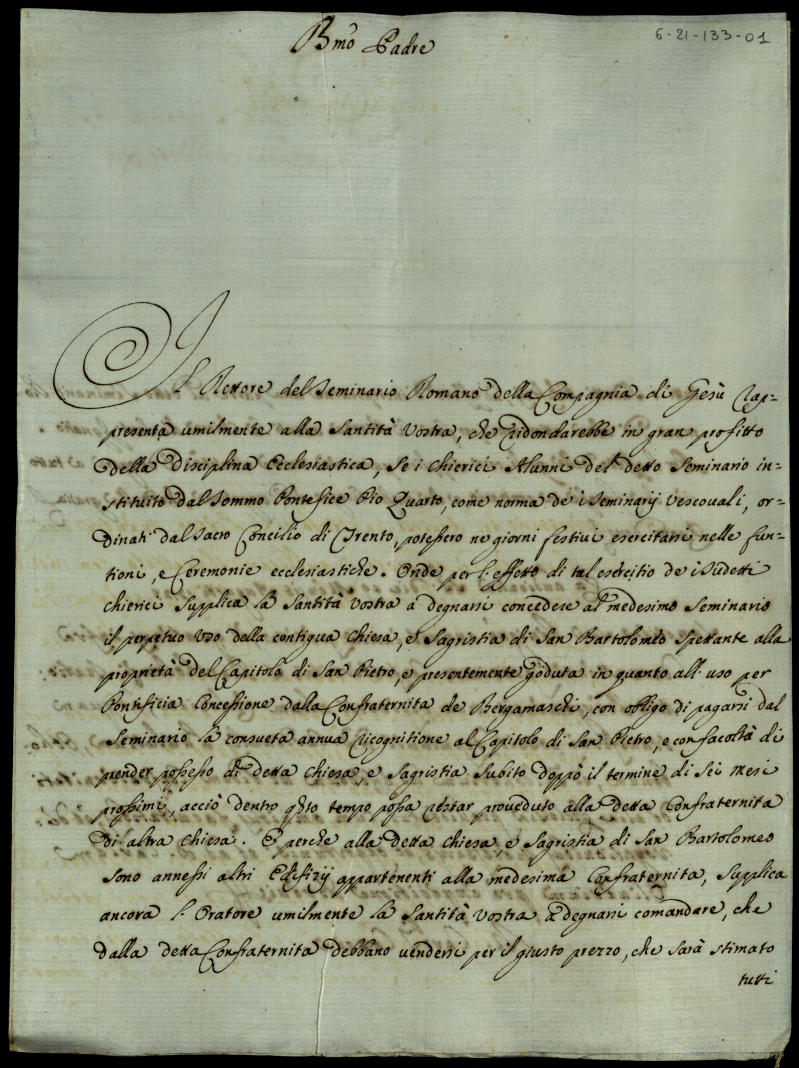 6-21-133-01
Bmo Padre
Il Rettore del Seminario Romano della Compagnia di Gesù rap=
presenta umilmente alla Santità Vostra, che ridondarebbe in gran profitto
della disciplina Ecclesiastica, se i Chierici Alunni del detto Seminario in=
stituito dal Sommo Pontefice Pio Quarto, come norma de i Seminarij Vescovali, or=
dinati dal Sacro Concilio di Trento, potessero ne giorni festivi esercitarsi nelle fun=
tioni, e Ceremonie ecclesiastiche. Onde per l'effetto di tal esercitio de i sudetti
Chierici supplica la Santità Vostra a degnarsi concedere al medesimo Seminario
il perpetuo uso della contigua Chiesa, e Sagristia di San Bartolomeo spettante alla
proprietà del Capitolo di San Pietro, e presentemente goduta in quanto all'uso per
Pontificia Concessione dalla Confraternita de Bergamaschi, con obligo di pagarsi dal
Seminario la consueta annua ricognitione al Capitolo di San Pietro, e con facoltà di
prender possesso di detta Chiesa, e Sagristia subito doppò il termine di sei mesi
prossimi, acciò dentro qsto tempo possa restar proveduto alla detta Confraternita
di altra Chiesa. E perche alla detta Chiesa, e Sagristia di San Bartolomeo
sono annessi altri Edifizij appartenenti alla medesima Confraternita, supplica
ancora l'Oratore umilmente la Santità Vostra a degnarsi comandare, che
dalla detta Confraternita debbano vendersi per il giusto prezzo, che sarà stimato
tutti